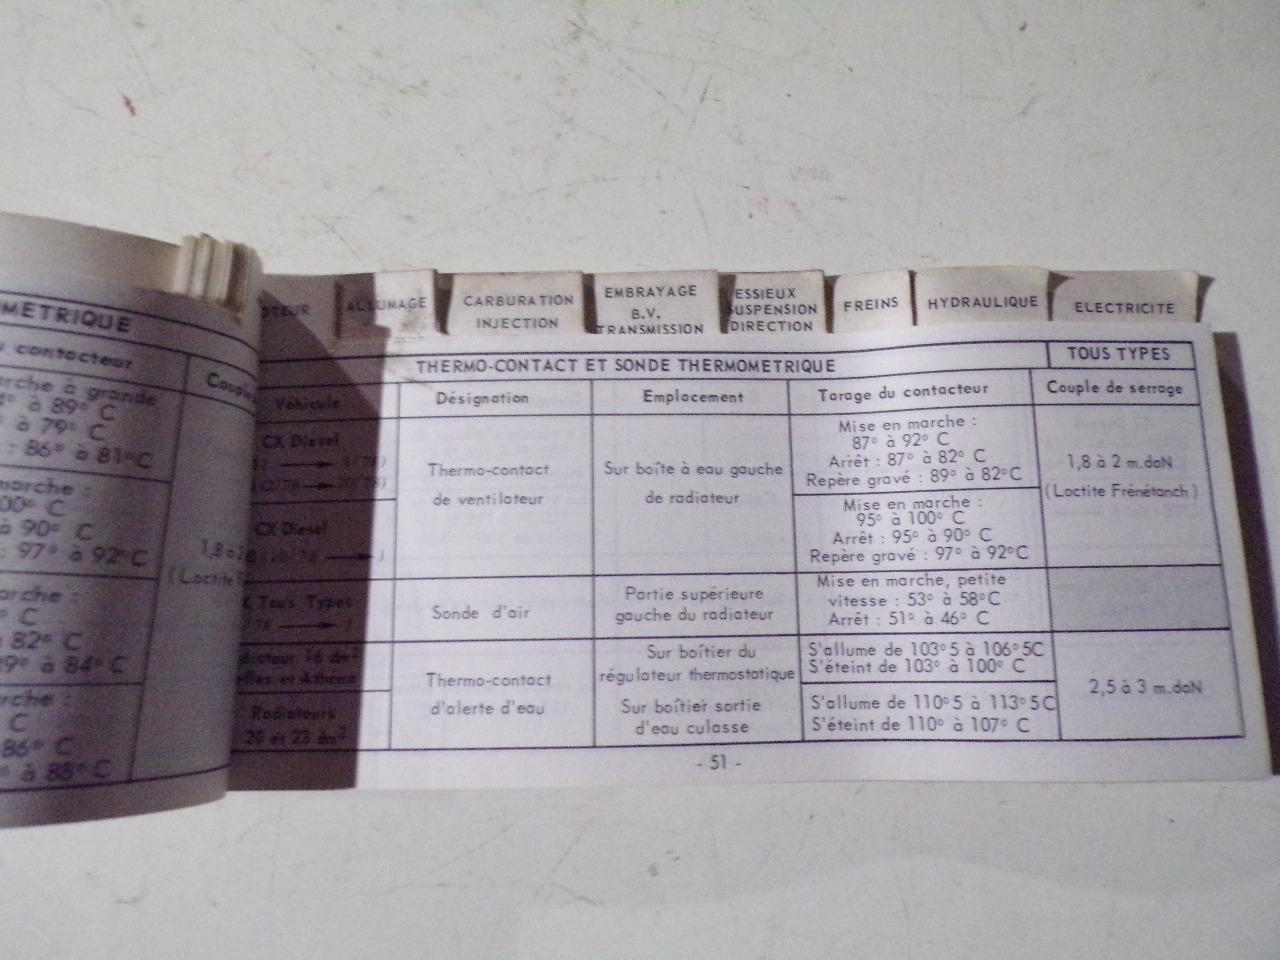 OMETRIQUE
contacteur
Couple
arche à grande
à 89° C
à 79° C
: 86° à 81°C
marche :
00° C
à 90° C
: 97° à 92°C
1,8 à 2
(Loctite
arche :
° C
82° C
9° à 84° C
rche :
C
86° C
° à 88° C
OTEUR
ALLUMAGE
CARBURATION
INJECTION
EMBRAYAGE
B.V.
TRANSMISSION
ESSIEUX
SUSPENSION
DIRECTION
FREINS
HYDRAULIQUE
ELECTRICITE
THERMO-CONTACT ET SONDE THERMOMETRIQUE
TOUS TYPES
Véhicule
Désignation
Emplacement
Tarage du contacteur
Couple de serrage
CX Diesel
Thermo-contact
de ventilateur
Sur boîte à eau gauche
de radiateur
Mise en marche :
87° à 92° C
Arrêt : 87° à 82° C
Repère gravé : 89° à 82°C
1,8 à 2 m.daN
(Loctite Frénétanch)
CX Diesel
Mise en marche :
95° à 100° C
Arrêt : 95° à 90° C
Repère gravé : 97° à 92°C
Tous Types
Sonde d'air
Partie supérieure
gauche du radiateur
Mise en marche, petite
vitesse : 53° à 58°C
Arrêt : 51° à 46° C
diateur 16 dm2
elles et Athena
Thermo-contact
d'alerte d'eau
Sur boîtier du
régulateur thermostatique
S'allume de 103°5 à 106°5C
S'éteint de 103° à 100° C
2,5 à 3 m.daN
Radiateurs
20 et 23 dm2
Sur boîtier sortie
d'eau culasse
S'allume de 110°5 à 113°5C
S'éteint de 110° à 107° C
- 51 -